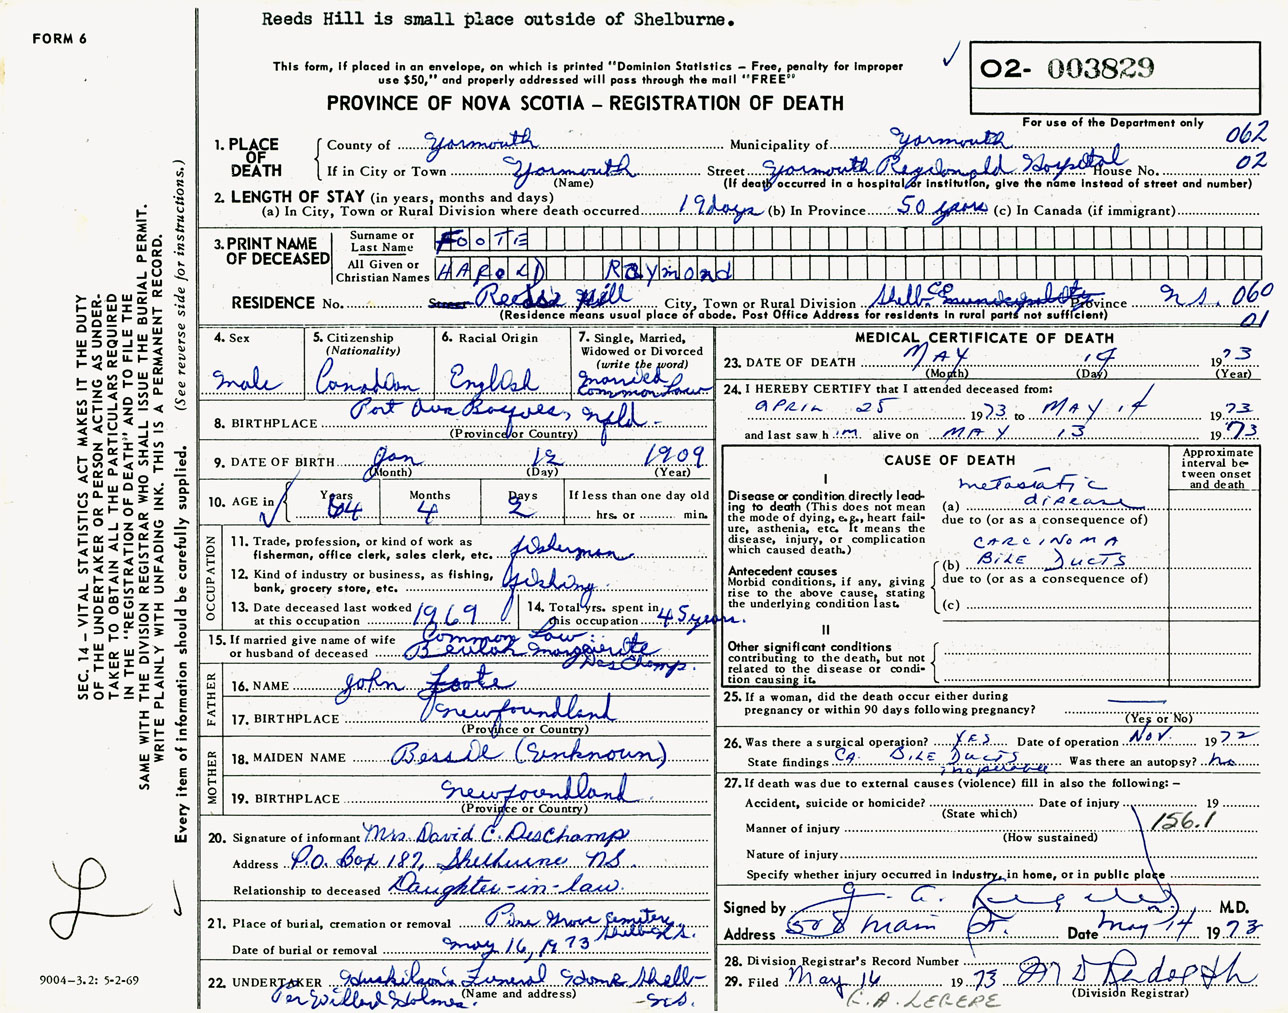 Reeds Hill is small place outside of Shelburne.
FORM 6
This form, if placed in an envelope, on which is printed "Dominion Statistics – Free, penalty for improper
use $50," and properly addressed will pass through the mail "FREE"
O2- 003829
PROVINCE OF NOVA SCOTIA – REGISTRATION OF DEATH
For use of the Department only
062
02
1. PLACE OF DEATH
County of Yarmouth Municipality of Yarmouth
If in City or Town Yarmouth Street Yarmouth Regional Hospital House No.
(Name) (If death occurred in a hospital or institution, give the name instead of street and number)
2. LENGTH OF STAY (in years, months and days)
(a) In City, Town or Rural Division where death occurred 19 days (b) In Province 50 years (c) In Canada (if immigrant)
3. PRINT NAME OF DECEASED
Surname or Last Name FOOTE
All Given or Christian Names HAROLD RAYMOND
RESIDENCE No. Reeds Hill City, Town or Rural Division Shelb. Co. Province N.S. 060
(Residence means usual place of abode. Post Office Address for residents in rural parts not sufficient)
01
4. Sex
Male
5. Citizenship
(Nationality)
Canadian
6. Racial Origin
English
7. Single, Married,
Widowed or Divorced
(write the word)
Married
Common Law
8. BIRTHPLACE Port Aux Basques, Nfld.
(Province or Country)
9. DATE OF BIRTH Jan 12 1909
(Month) (Day) (Year)
10. AGE in
Years 64
Months 4
Days 2
If less than one day old
hrs. or min.
OCCUPATION
11. Trade, profession, or kind of work as
fisherman, office clerk, sales clerk, etc. fisherman
12. Kind of industry or business, as fishing,
bank, grocery store, etc. fishing
13. Date deceased last worked
at this occupation 1969
14. Total yrs. spent in
this occupation 45 years.
15. If married give name of wife
or husband of deceased Common Law:
Beulah Marguerite
DesChamp.
FATHER
16. NAME John Foote
17. BIRTHPLACE Newfoundland
(Province or Country)
MOTHER
18. MAIDEN NAME Bessie (Unknown)
19. BIRTHPLACE Newfoundland
(Province or Country)
20. Signature of informant Mrs. David C. DesChamp
Address P.O. Box 187, Shelburne NS.
Relationship to deceased Daughter-in-law.
21. Place of burial, cremation or removal Pine Grove Cemetery
Shelb. N.S.
Date of burial or removal May 16, 1973
22. UNDERTAKER Huskilson's Funeral Home Shelb-
N.S.
(Name and address)
Per Willard Holmes.
MEDICAL CERTIFICATE OF DEATH
23. DATE OF DEATH MAY 14 1973
(Month) (Day) (Year)
24. I HEREBY CERTIFY that I attended deceased from:
APRIL 25 1973 to MAY 14 1973
and last saw him alive on MAY 13 1973
CAUSE OF DEATH
Approximate
interval be-
tween onset
and death
I
Disease or condition directly lead-
ing to death (This does not mean
the mode of dying, e.g., heart fail-
ure, asthenia, etc. It means the
disease, injury, or complication
which caused death.)
metastatic
(a) disease
due to (or as a consequence of)
CARCINOMA
(b) BILE DUCTS
due to (or as a consequence of)
(c)
Antecedent causes
Morbid conditions, if any, giving
rise to the above cause, stating
the underlying condition last.
II
Other significant conditions
contributing to the death, but not
related to the disease or condi-
tion causing it.
25. If a woman, did the death occur either during
pregnancy or within 90 days following pregnancy?
(Yes or No)
26. Was there a surgical operation? YES Date of operation NOV. 1972
State findings CA. BILE DUCTS Was there an autopsy? No
inoperable
27. If death was due to external causes (violence) fill in also the following: –
Accident, suicide or homicide? Date of injury 19
(State which)
Manner of injury 156.1
(How sustained)
Nature of injury
Specify whether injury occurred in industry, in home, or in public place
Signed by G. A. M.D.
Address 508 Main St. Date May 14 1973
28. Division Registrar's Record Number
29. Filed May 16 1973
(Division Registrar)
SEC. 14 – VITAL STATISTICS ACT MAKES IT THE DUTY
OF THE UNDERTAKER OR PERSON ACTING AS UNDER-
TAKER TO OBTAIN ALL THE PARTICULARS REQUIRED
IN THE "REGISTRATION OF DEATH" AND TO FILE THE
SAME WITH THE DIVISION REGISTRAR WHO SHALL ISSUE THE BURIAL PERMIT.
WRITE PLAINLY WITH UNFADING INK. THIS IS A PERMANENT RECORD.
Every item of information should be carefully supplied. (See reverse side for instructions.)
9004–3.2: 5-2-69